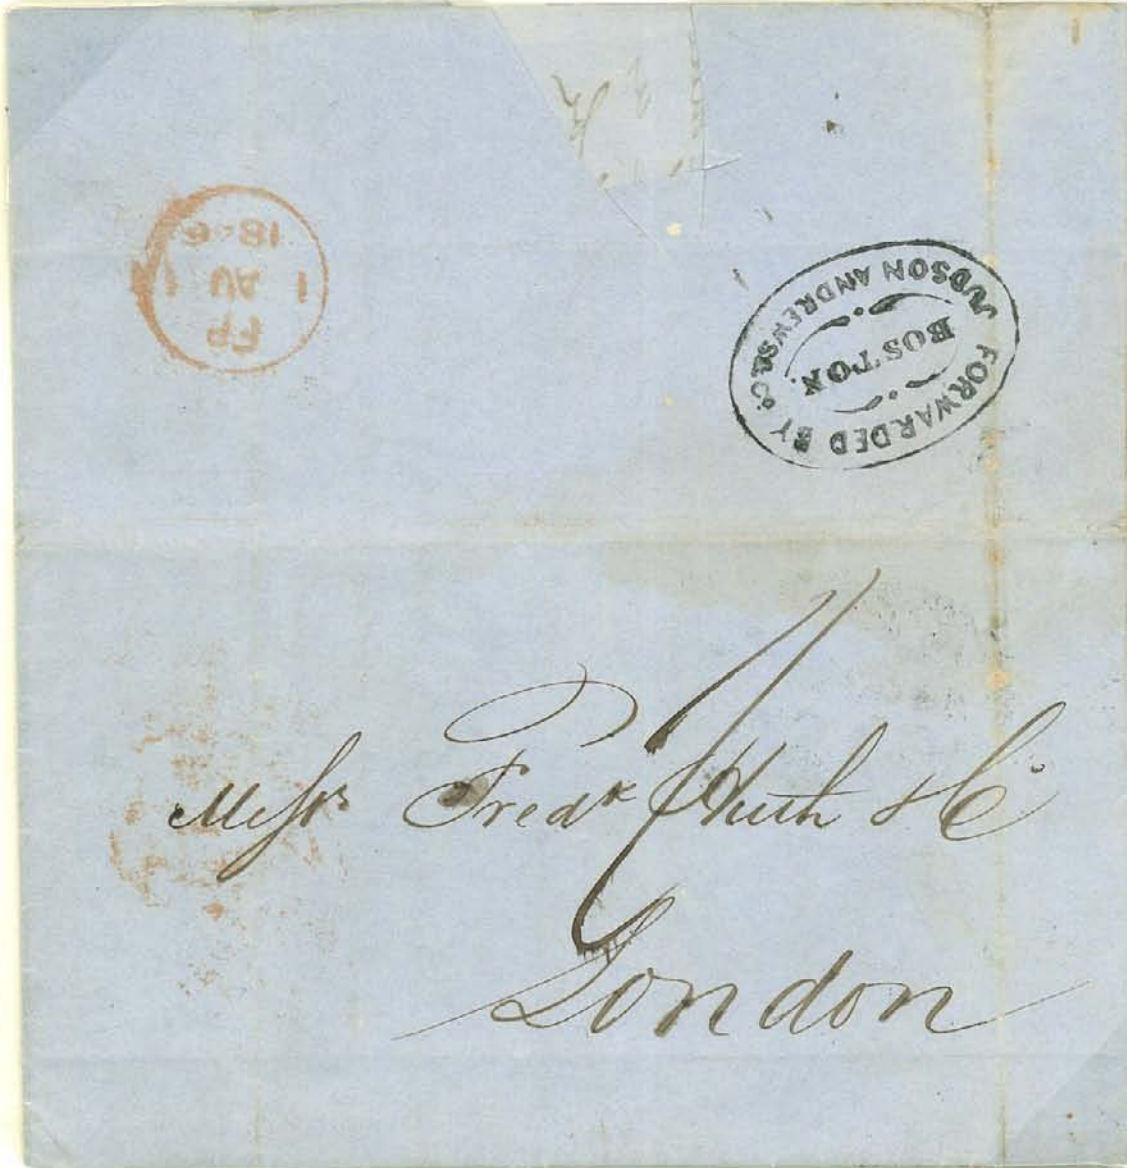 FORWARDED BY
JUDSON ANDREWS & Co
BOSTON.
AU
Messrs Fredk Huth & Co
London